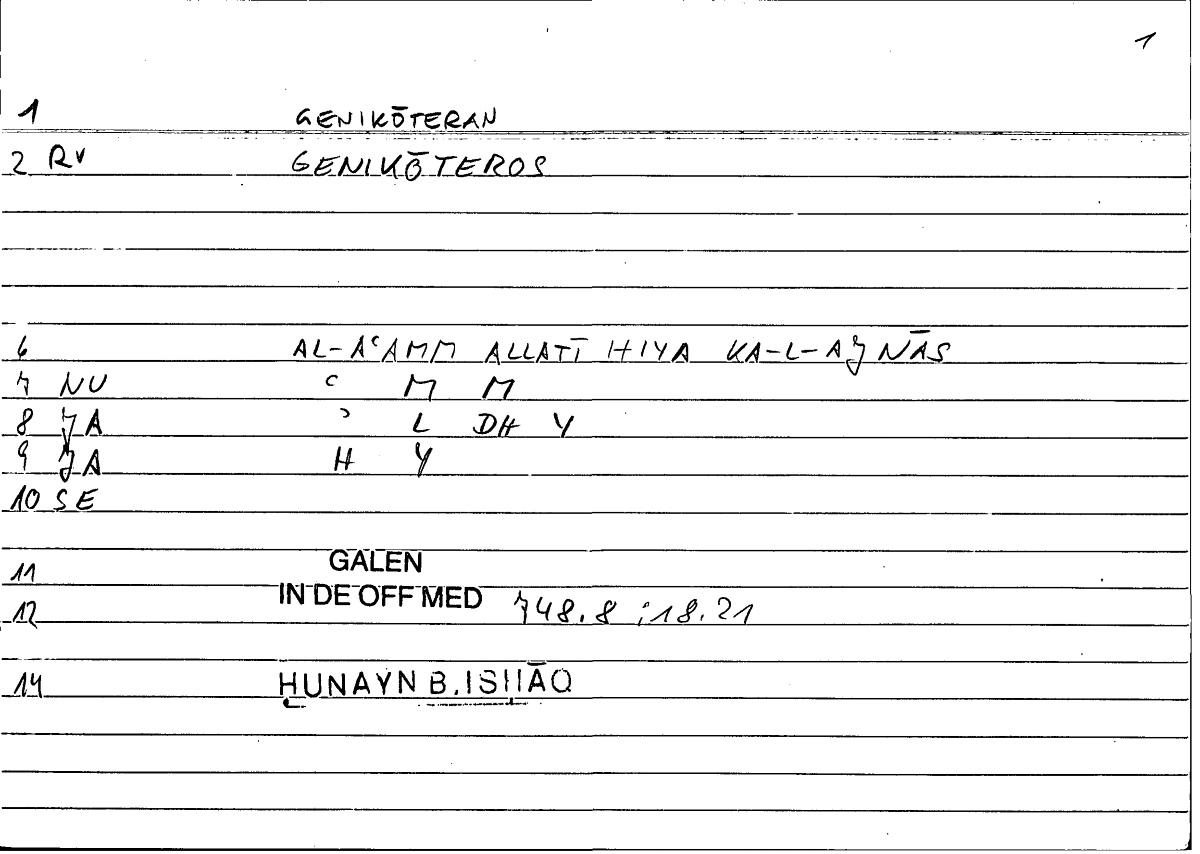 1
1 GENIKŌTERAN
2 RV GENIKŌTEROS
6 AL-AʿAMM ALLATĪ HIYA KA-L-AJNĀS
7 NU ʿ M M
8 JA ʾ L DH Y
9 JA H Y
10 SE
11 GALEN
12 IN DE OFF MED 748.8 ; 18.21
14 ḤUNAYN B. ISḤĀQ